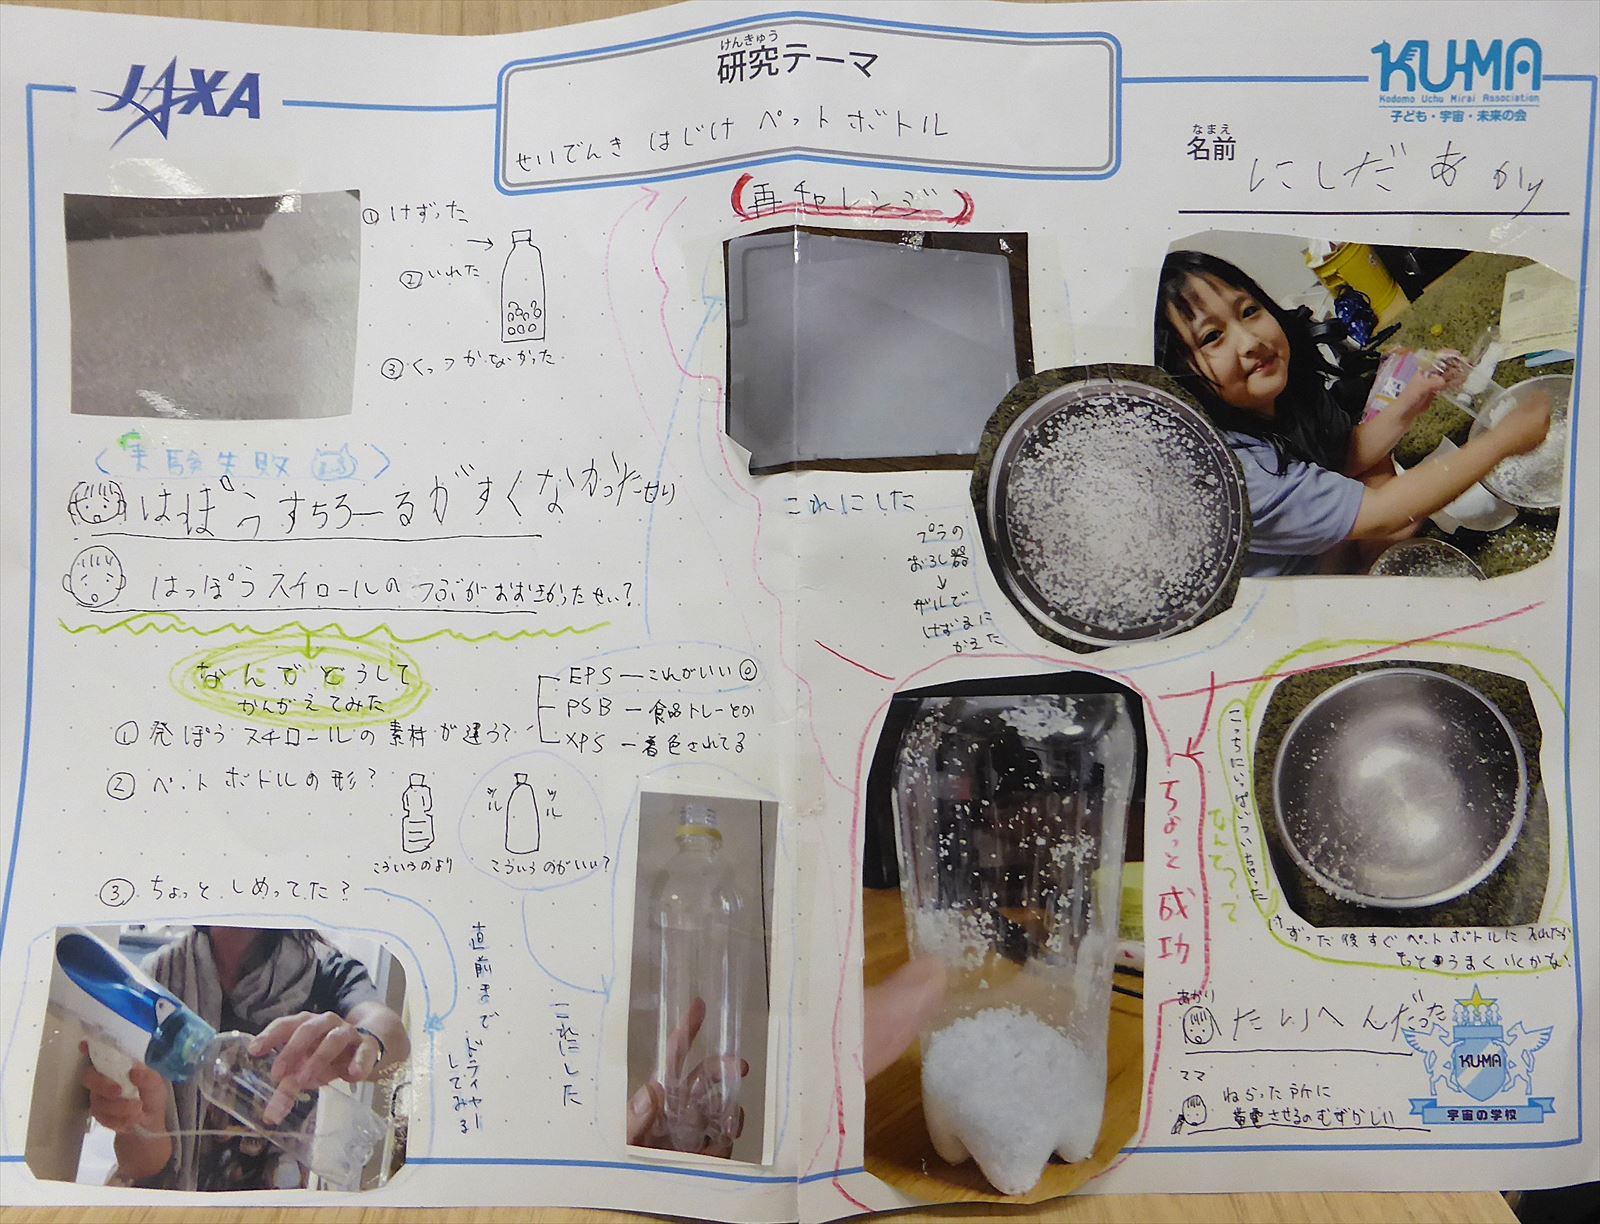 JAXA
けんきゅう
研究テーマ
せいでんき はじけ ペットボトル
KUMA
Kodomo Uchu Mirai Association
子ども・宇宙・未来の会
なまえ
名前
にしだ あかり
再チャレンジ
①けずった
②いれた
③くっつかなかった
〈実験失敗〉
はぽうすちろーるがすくなかった
はっぽうスチロールの つぶがおおきかったせい?
なんでどうして
かんがえてみた
①発ぽうスチロールの素材が違う?
EPS―これがいい
PSB―食品トレーとか
XPS―着色されてる
②ペットボトルの形?
ツル
ツル
こういうのより
こういうのがいい?
③ちょっとしめってた?
直前まで
ドライヤー
してみる
これにした
これにした
プラの
おろし器
↓
ザルで
けずるに
かえた
ちょっと成功
こっちにいっぱいついちゃった
けずった後すぐペットボトルにそれたら
もっとうまくいくかな
あかり
たいへんだった
ママ
ねらった所に
蓄電させるのむずかしい
KUMA
宇宙の学校